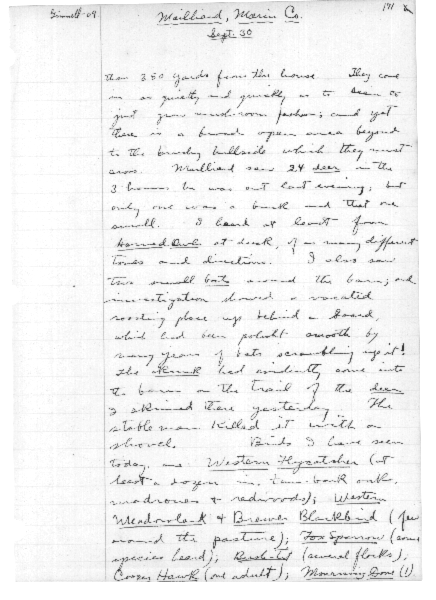 Grinnell-09 171
Mailliard, Marin Co.
Sept. 30
than 350 yards from the house. They come
in as quietly and quickly as to seem to
just grow mushroom fashion; and yet
there is a broad open area beyond
to the brushy hillside which they must
cross. Mailliard saw 24 deer in the
3 hours he was out last evening; but
only one was a buck and that one
small. I heard at least four
Horned Owls at dusk, of as many different
tones and directions. I also saw
two small bats around the barn; and
investigation showed a vacated
roosting place up behind a board,
which had been polisht smooth by
many years of bats scrambling up it!
The skunk had evidently come into
the barn on the trail of the deer
I skinned there yesterday. The
stable man killed it with a
shovel. Birds I have seen
today, are Western Flycatcher (at
least a dozen in tan-bark oaks,
madrones & redwoods); Western
Meadowlark & Brewer Blackbird (few
around the pasture); Fox Sparrow (some
species heard); Bush-tit (several flocks);
Cooper Hawk (one adult); Mourning Dove (1)